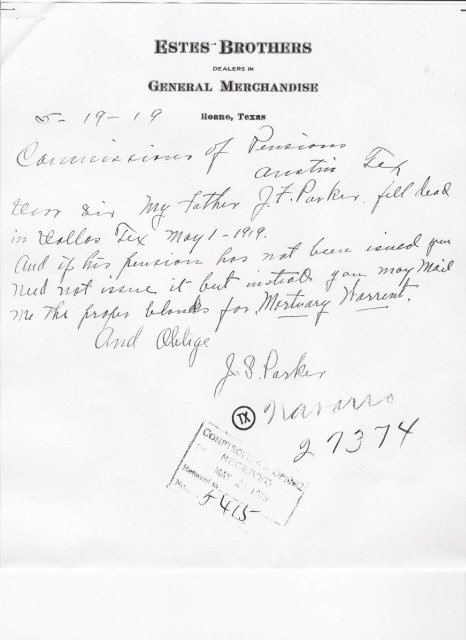 ESTES BROTHERS
DEALERS IN
GENERAL MERCHANDISE
Roane, Texas
5-19-19
Commissions of Pensions
Austin Tex
Dear Sir My Father J. F. Parker, fell dead
in Dallas Tex May 1-1919.
And if his pension has not been issued you
need not issue it but instead you may Mail
me the proper blanks for Mortuary Warrent.
And Oblige
J. S. Parker
TX Navarro
27374
COMPTROLLER'S OFFICE
RECEIVED
MAY 2 1919
Referred to
No. 5415